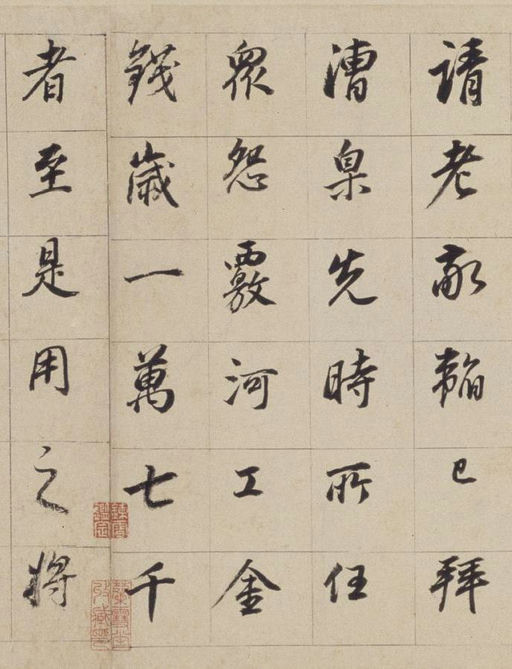 請老已拜
漕臬先時所任
眾怨覈河工金
錢歲一萬七千
者至是用之將